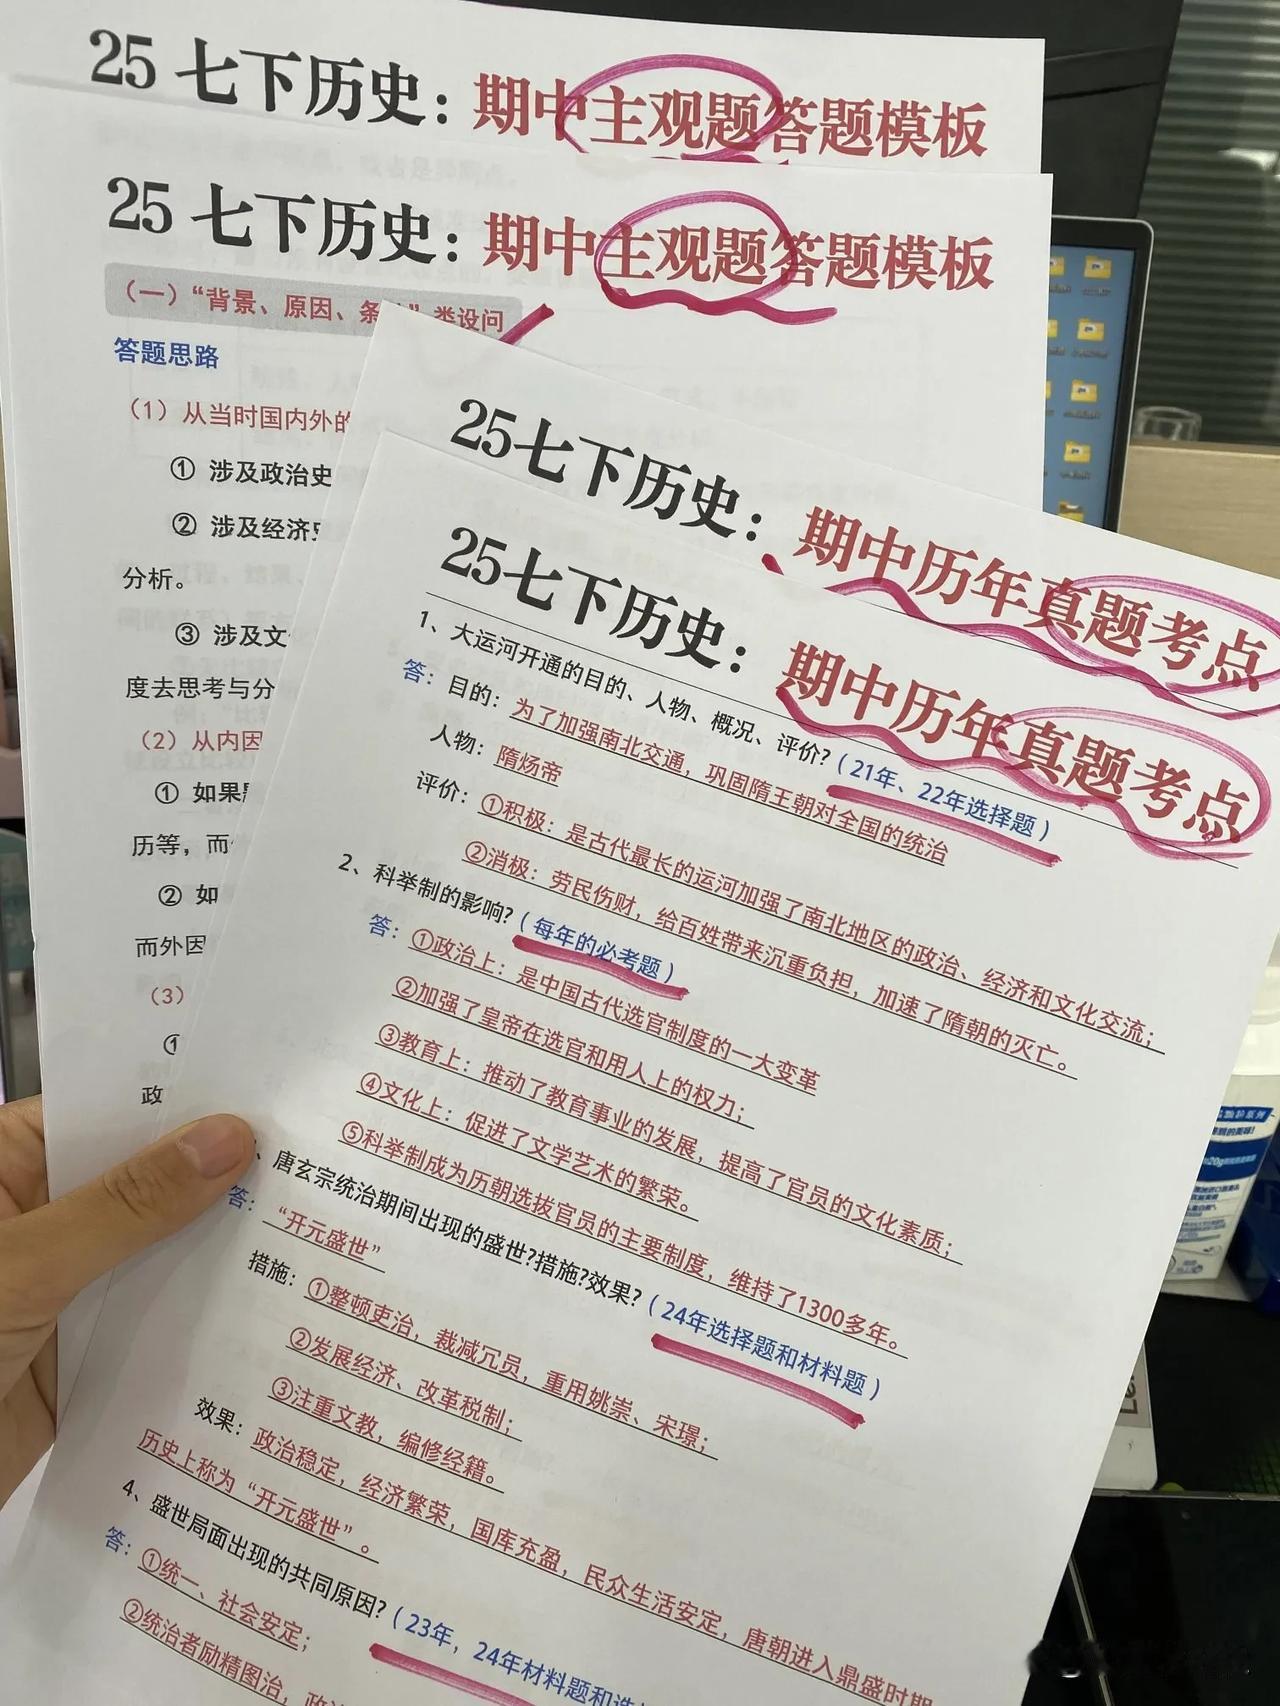 25 七下历史：期中主观题答题模板
25 七下历史：期中主观题答题模板
（一）“背景、原因、条 ”类设问
答题思路
（1）从当时国内外的
① 涉及政治史
② 涉及经济史
分析。
③ 涉及文
度去思考与分
（2）从内因
① 如果
历等，而
② 如
而外因
（3）
①
政
25七下历史：期中历年真题考点
25七下历史：期中历年真题考点
1、大运河开通的目的、人物、概况、评价?（21年、22年选择题）
答：目的：为了加强南北交通，巩固隋王朝对全国的统治
人物：隋炀帝
评价：①积极：是古代最长的运河加强了南北地区的政治、经济和文化交流；
②消极：劳民伤财，给百姓带来沉重负担，加速了隋朝的灭亡。
2、科举制的影响?（每年的必考题）
答：①政治上：是中国古代选官制度的一大变革
②加强了皇帝在选官和用人上的权力；
③教育上：推动了教育事业的发展，提高了官员的文化素质；
④文化上：促进了文学艺术的繁荣。
⑤科举制成为历朝选拔官员的主要制度，维持了1300多年。
、唐玄宗统治期间出现的盛世?措施?效果?（24年选择题和材料题）
答：“开元盛世”
措施：①整顿吏治，裁减冗员，重用姚崇、宋璟；
②发展经济、改革税制；
③注重文教，编修经籍。
效果：政治稳定，经济繁荣，国库充盈，民众生活安定，唐朝进入鼎盛时期
历史上称为“开元盛世”。
4、盛世局面出现的共同原因?（23年，24年材料题和选
答：①统一、社会安定；
②统治者励精图治，政